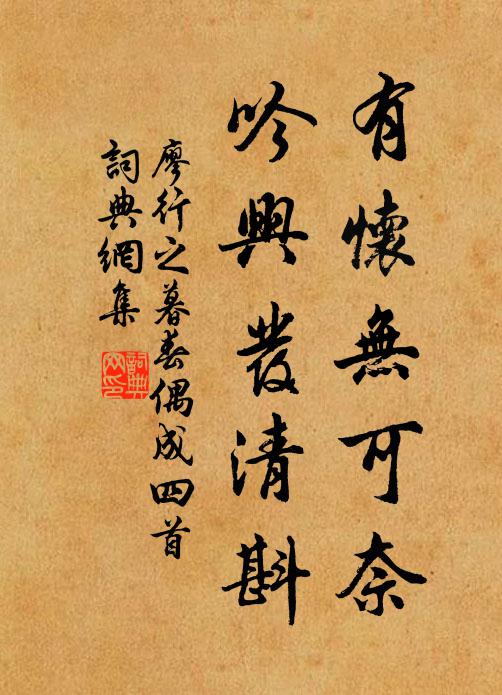 有懷無可奈
吟興發清斟
廖行之暮春偶成四首
詞典網集
詞典網印